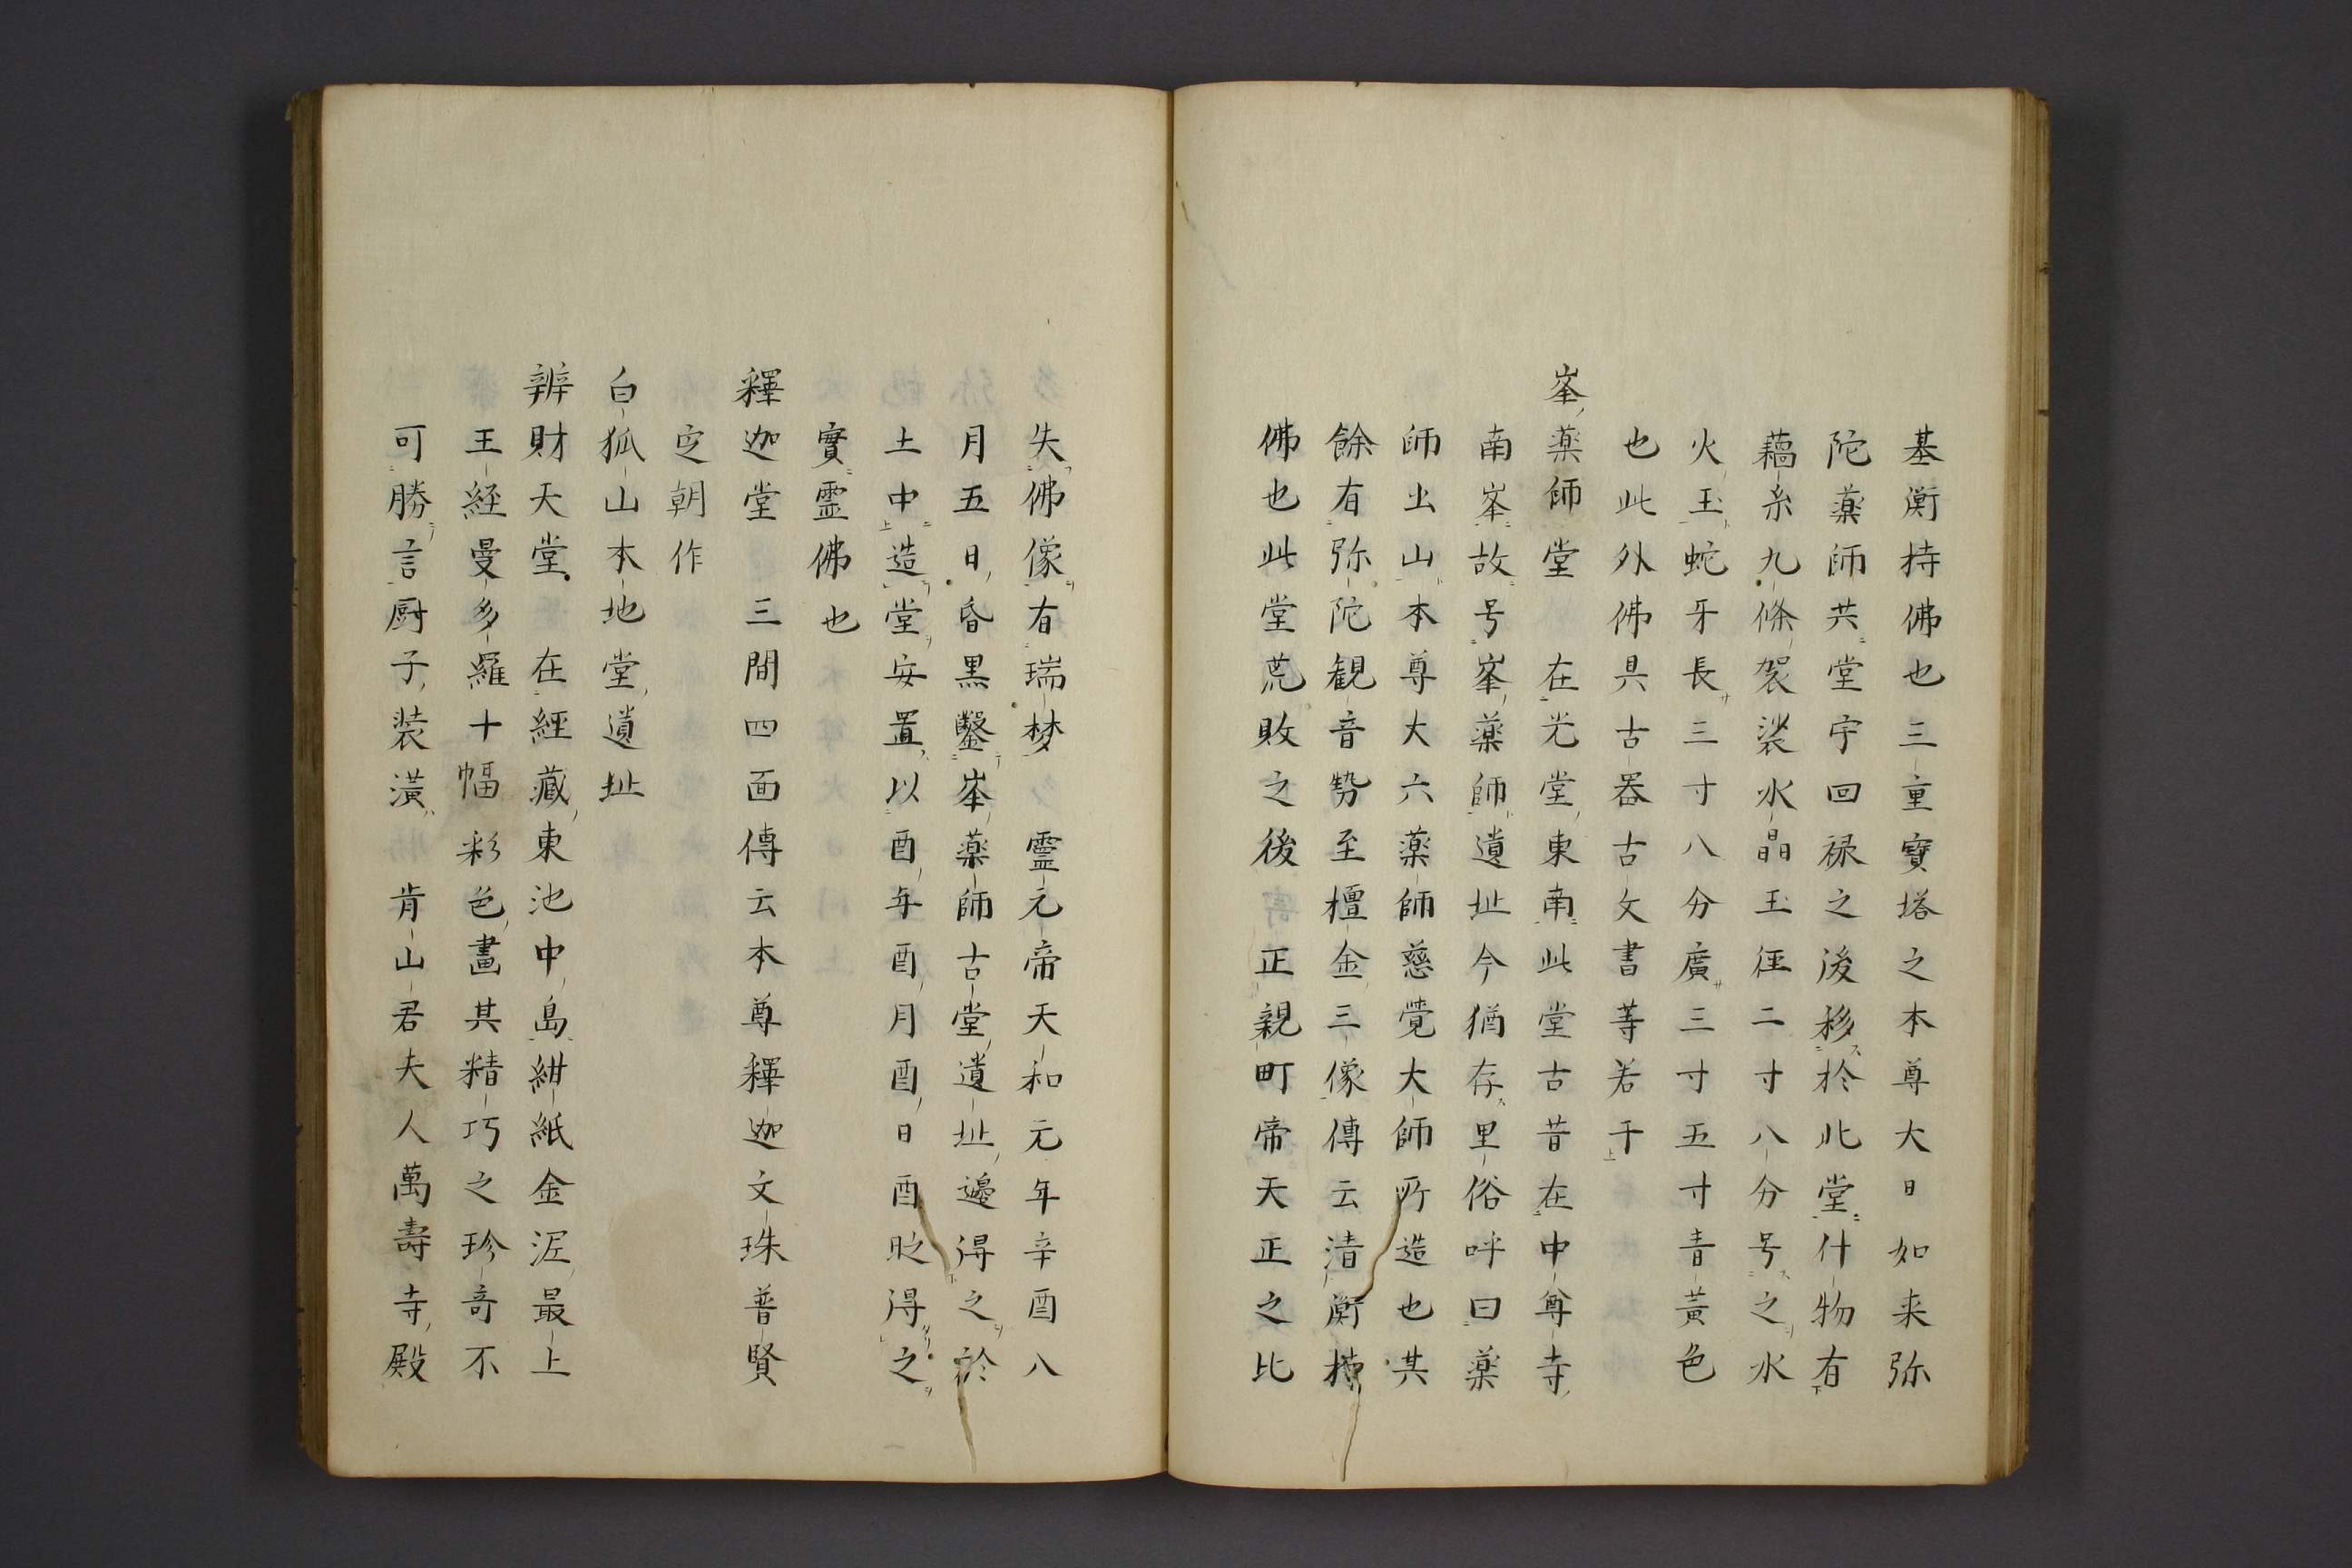 基衡持佛也三重寶塔之本尊大日如来弥
陀薬師共堂宇回禄之後移於此堂什物有
藕糸九條袈裟水晶玉径二寸八分号之水
火玉蛇牙長三寸八分廣三寸五寸青黃色
也此外佛具古器古文書等若干
峯薬師堂　在光堂東南此堂古昔在中尊寺
南峯故号峯薬師遺址今猶存里俗呼曰薬
師出山本尊大六薬師慈覚大師所造也其
餘有弥陀観音勢至檀金三像傳云清衡持
佛也此堂荒敗之後　正親町帝天正之比
失佛像有瑞梦　霊元帝天和元年辛酉八
月五日昏黒鑿峯薬師古堂遺址邊得之於
土中造堂安置以酉年酉月酉日酉時得之
實霊佛也
釋迦堂　三間四面傳云本尊釋迦文珠普賢
定朝作
白狐山本地堂遺址
辨財天堂　在經藏東池中島紺紙金泥最上
王経曼多羅十幅彩色畫其精巧之珍奇不
可勝言厨子装潢　肯山君夫人萬壽寺殿